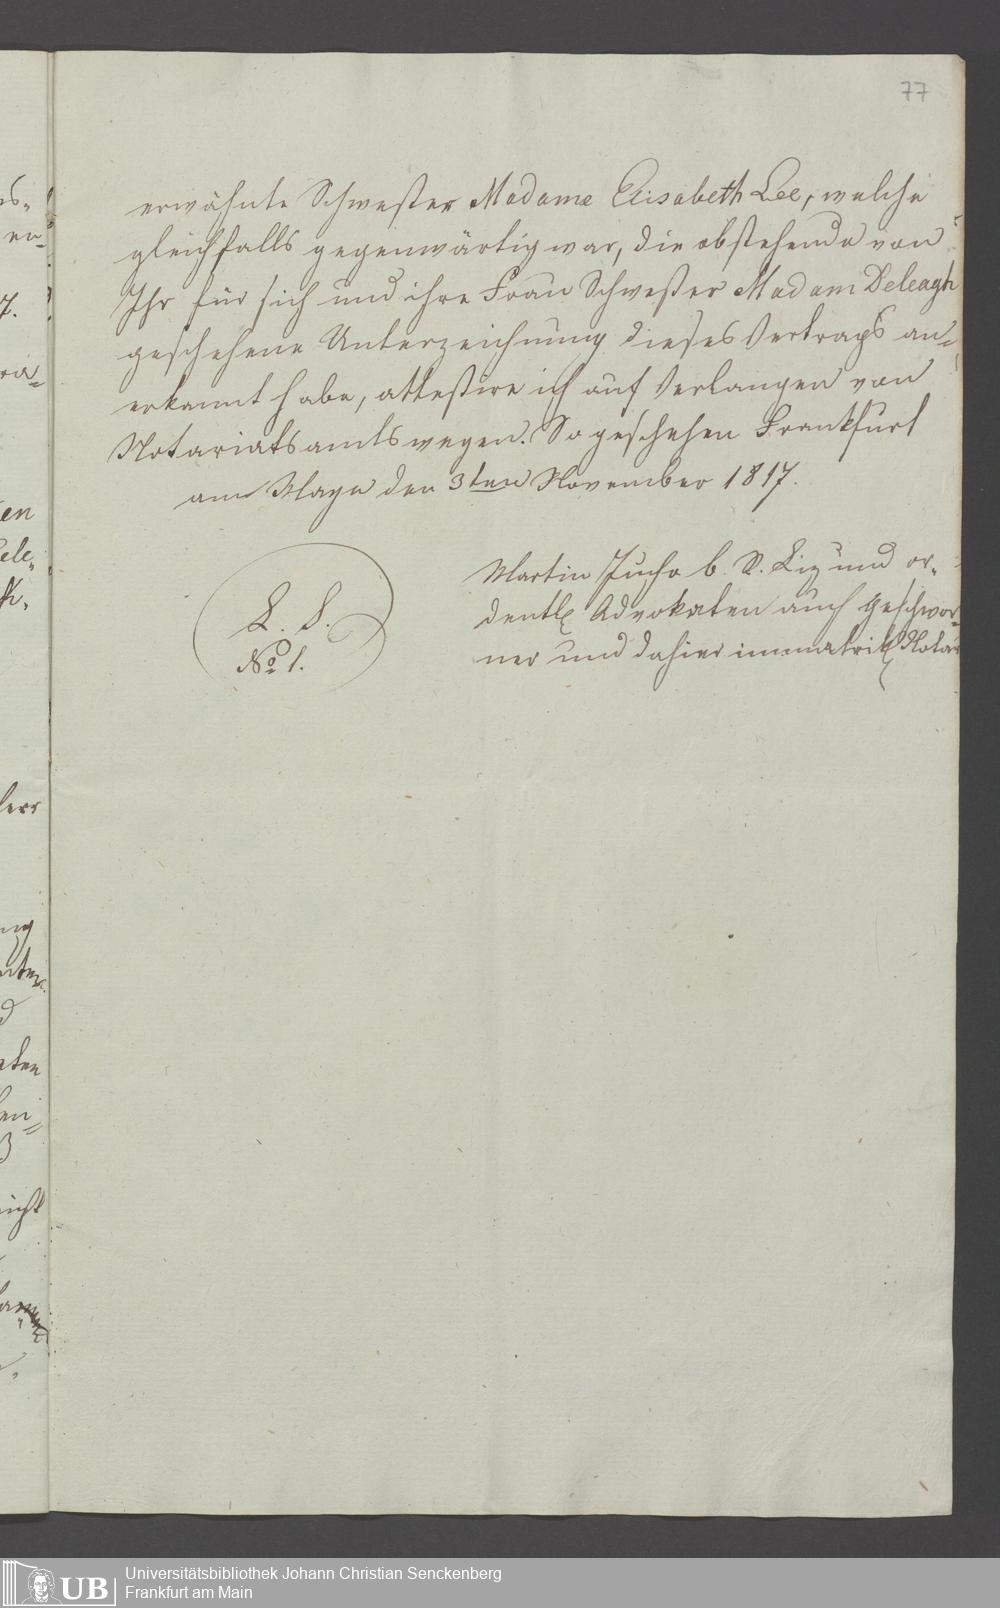 77
erwähnte Schwester Madame Elisabeth Lee, welche
gleichfalls gegenwärtig war, die obstehende von
Ihr für sich und ihre Frau Schwester Madam Deleagh
geschehene Unterzeichnung dieses Vertrags an=
erkannt habe, attestire ich auf Verlangen von
Notariatsamtswegen. So geschehen Frankfurt
am Mayn den 3ten November 1817.
L. S.
No 1.
Martin Jucho b. R. Liz und or=
dentl. Advokaten auch geschwor=
ner und dahier immatrikl. Notar
Universitätsbibliothek Johann Christian Senckenberg
Frankfurt am Main
UB